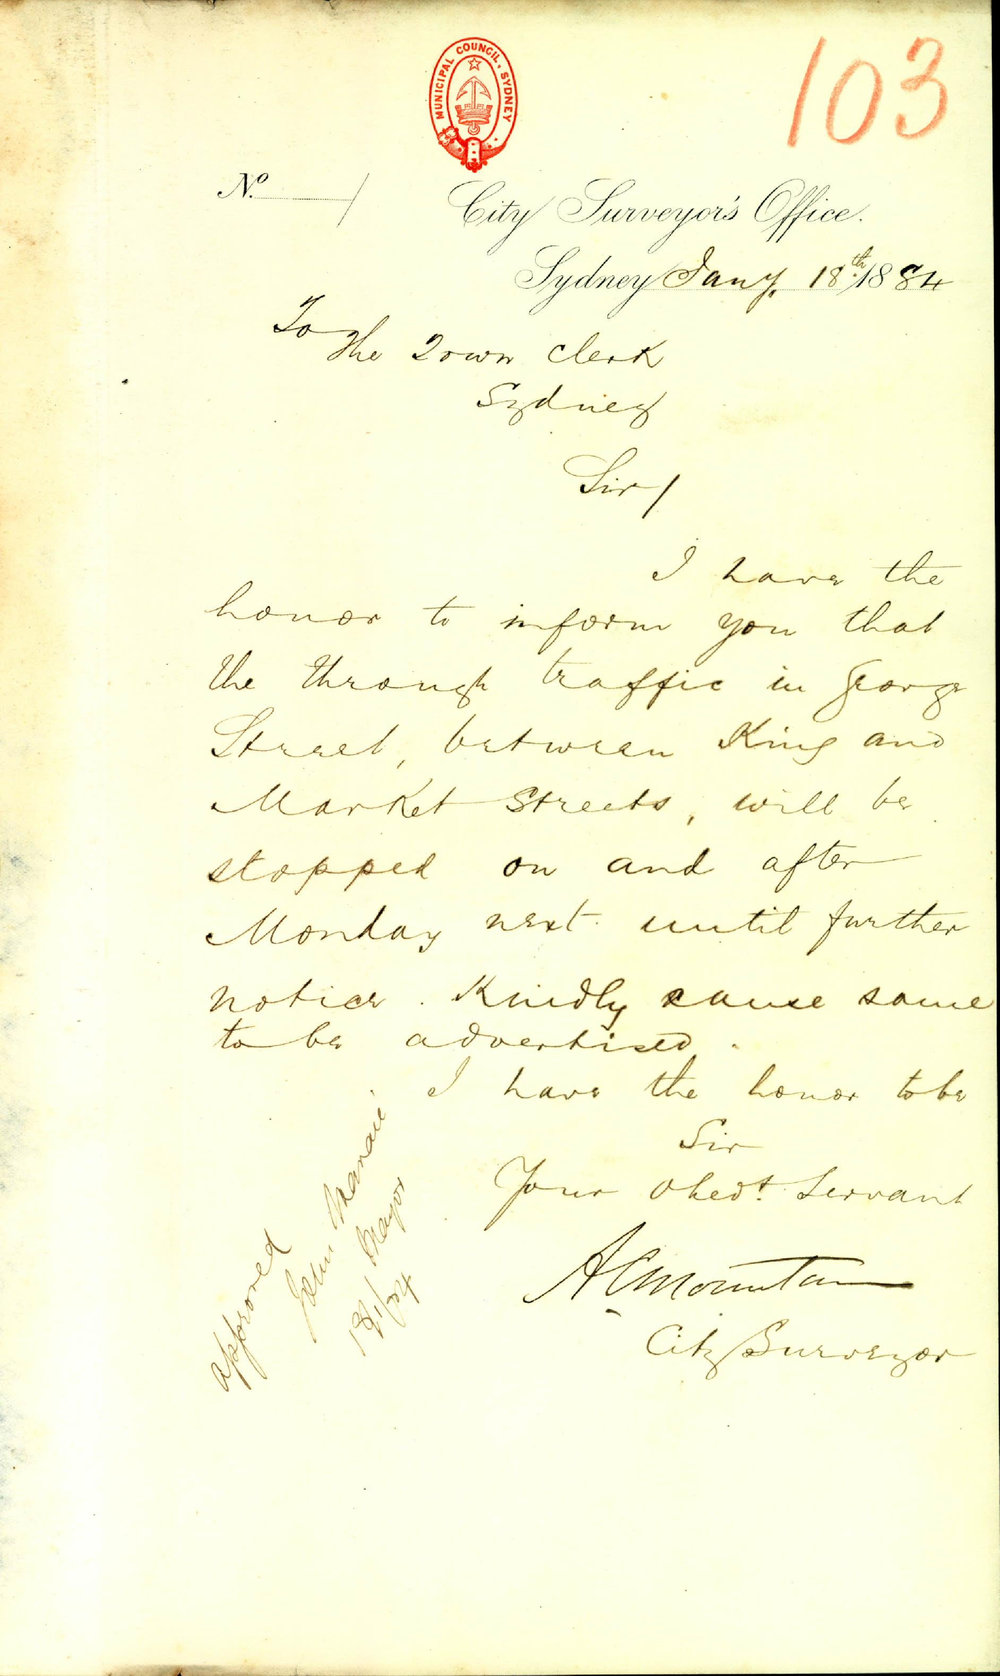 103
MUNICIPAL COUNCIL, SYDNEY
No. /
City Surveyor's Office.
Sydney Jany. 18th. 1884
To
The Town Clerk
Sydney
Sir/
I have the
honor to inform you that
the through traffic in George
Street, between King and
Market Streets, will be
stopped on and after
Monday next until further
notice. Kindly cause same
to be advertised.
I have the honor to be
Sir
Your Obedt. Servant
A C Mountain
City Surveyor
approved
John Hardie
Mayor
18/1/84